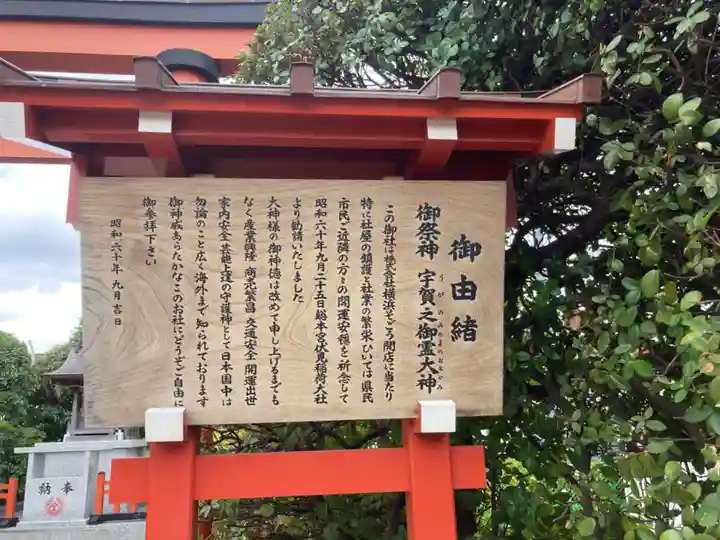 御由緒
御祭神 宇賀之御霊大神
うがのみたまのおおかみ
この御社は株式会社横浜そごう開店に当たり
特に社屋の鎮護と社業の繁栄ひいては県民
市民ご近隣の方々の開運安穏を祈念して
昭和六十年九月二十五日総本宮伏見稲荷大社
より勧請いたしました
大神様の御神徳は改めて申し上げるまでも
なく産業興隆 商売繁昌 交通安全 開運出世
家内安全 芸能上達の守護神として日本国中は
勿論のこと広く海外まで知られております
御神威あらたかなこのお社にどうぞご自由に
御参拝下さい
昭和六十年 九月吉日
奉納